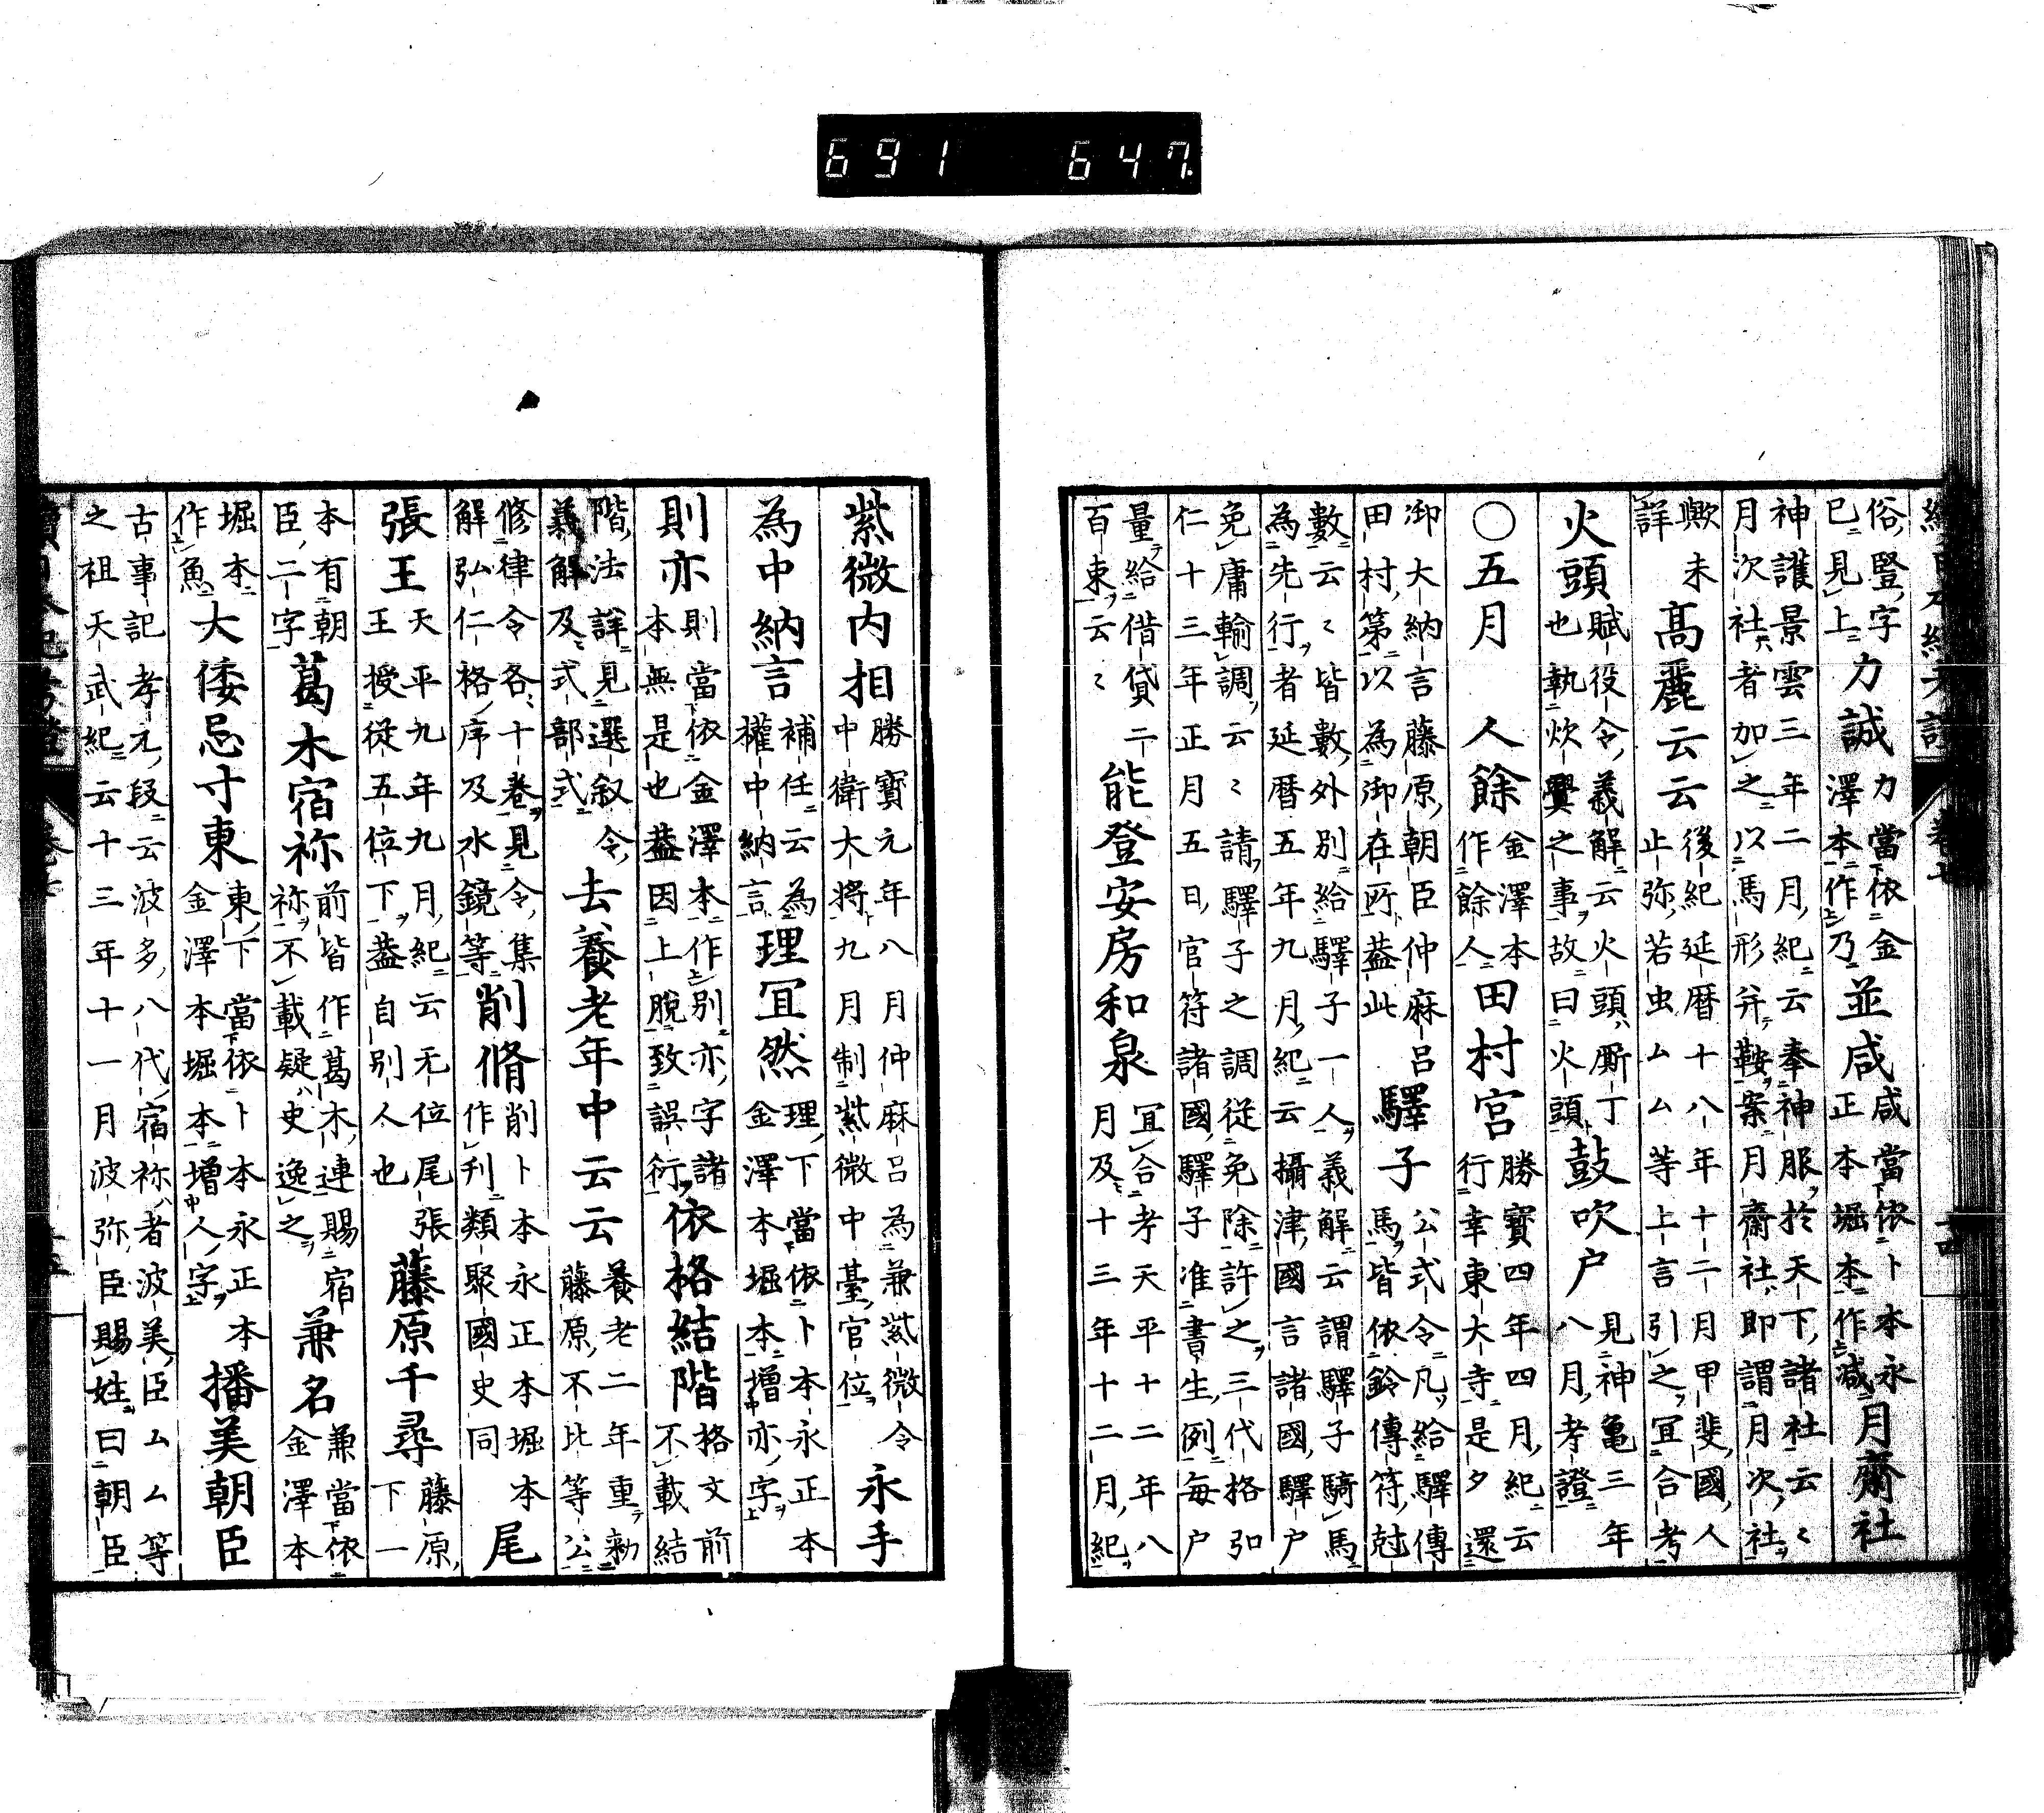 691 647.
俗、豎、字
已見上
力誠
力當依金
澤本作乃
並咸
咸當依卜本永
正本堀本作減
月齋社
神護景雲三年二月、紀云奉神服於天下、諸社云〻
月次社者加之以馬形并鞍、案月齋社、即謂月次社
歟未
詳
高麗云云
後紀延暦十八年十二月甲斐國、人
止弥、若虫ムム等上言引之、宜合考
火頭
賦役令、義解云火頭、厮丁
也執炊爨之事、故曰火頭
鼓吹户
見神龜三年
八月、考證
○五月
人餘
金澤本
作餘人
田村宮
勝寶四年四月、紀云
行幸東大寺是夕還
御大納言藤原朝臣仲麻呂
田村第以為御在所、蓋此
驛子
公式令凡給驛傳
馬皆依鈴傳符、尅
數云〻皆數外別給驛子一人、義解云謂驛子騎馬
為先行者延暦五年九月、紀云攝津、國言諸國、驛户
免庸輸調、云〻請、驛子之調從免除許之、三代格弘
仁十三年正月五日、官符諸國、驛子准書生、例每户
量給借貸二
百束云〻
能登安房和泉
宜合考天平十二年八
月及十三年十二月、紀
紫微内相
勝寶元年八月仲麻呂為兼紫微令
中衛大將九月制紫微中臺、官位
永手
為中納言
補任云為
權中納言
理冝然
理、下當依卜本永正本
金澤本堀本增亦字
則亦
則當依金澤本作別亦、字諸
本無是也蓋因上脱致誤衍
依格結階
格文前
不載結
階、法詳見選叙令、
義解及式部式
去養老年中云云
養老二年重勅
藤原、不比等公
修律令各、十卷見令、集
解弘仁格序及水鏡等
削脩
削卜本永正本堀本
作刋類聚國史同
尾
張王
天平九年九月紀云无位尾張
王授從五位下蓋自别人也
藤原千尋
藤原、
下一
本有朝
臣二字
葛木宿祢
前皆作葛木、連賜宿
祢不載疑史逸之
兼名
兼當依
金澤本
堀本
作魚
大倭忌寸東
東、下當依卜本永正本
金澤本堀本增人、字
播美朝臣
古事記孝元段云波多八代宿祢者波美臣ムム等
之祖天武紀云十三年十一月波弥臣賜姓曰朝臣